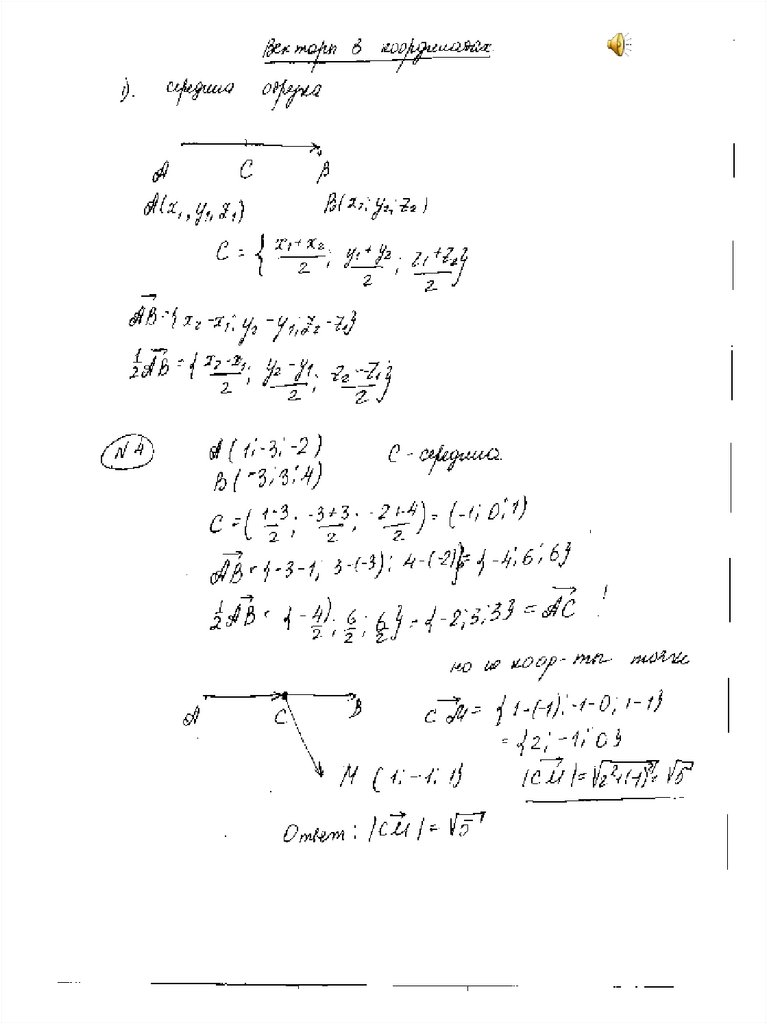 Вектора в координатах.
1). середина отрезка
A C B
A(x₁, y₁, z₁) B(x₂; y₂; z₂)
C = { (x₁+x₂)/2 ; (y₁+y₂)/2 ; (z₁+z₂)/2 }
AB = {x₂-x₁; y₂-y₁; z₂-z₁}
1/2 AB = { (x₂-x₁)/2 ; (y₂-y₁)/2 ; (z₂-z₁)/2 }
N4 A(1;-3;-2) C - середина.
B(-3;3;4)
C = ( (1-3)/2 ; (-3+3)/2 ; (-2+4)/2 ) = (-1; 0; 1)
AB = {-3-1; 3-(-3); 4-(-2)} = {-4; 6; 6}
1/2 AB = { -4/2 ; 6/2 ; 6/2 } = {-2; 3; 3} = AC !
коор-ты точки
A C B CM = {1-(-1); -1-0; 1-1}
= {2; -1; 0}
M (1; -1; 1) |CM| = √(2²+(-1)²) = √5
Ответ: |CM| = √5